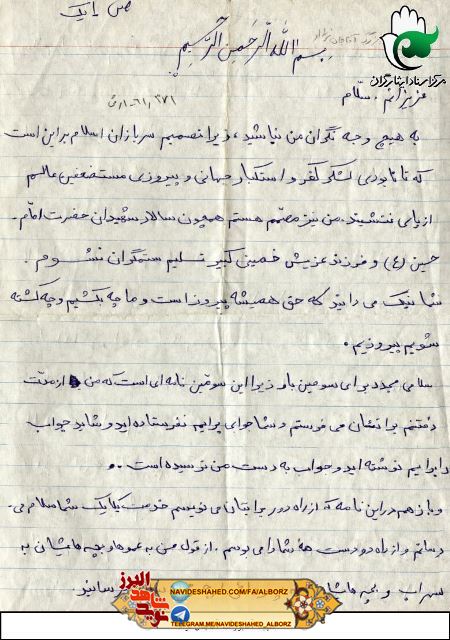 ص یک
بسم الله الرحمن الرحیم
مرکز اسناد ایثارگران
عزیزانم. سلام
به هیچ وجه نگران من نباشید، زیرا تصمیم سربازان اسلام بر این است
که تا نابودی لشکر کفر و استکبار جهانی و پیروزی مستضعفین عالم
از پای ننشیند. من نیز مصمّم هستم همچون سالار شهیدان حضرت امام
حسین (ع) و فرزند عزیزش خمینی کبیر تسلیم ستمگران نشوم.
شما نیک می دانید که حق همیشه پیروز است و ما چه بکشیم و چه کشته
شویم پیروزیم.
سلامی مجدد برای سومین بار زیرا این سومین نامه ای است که من از مدت
رفتنم برایتان می فرستم و شما جوابی برایم نفرستاده اید و شاید جواب
را برایم نوشته اید و جواب به دست من نرسیده است.
و باز هم در این نامه که از راه دور برایتان می نویسم خدمت یکایک شما سلام می
رسانم و از راه دور دست همه شما را می بوسم. از قول من به عموها و بچه هایشان به
سهراب و بچه هایش رسانید.
نوید شاهد البرز
NAVIDESHAHED.COM/FA/ALBORZ
TELEGRAM.ME/NAVIDESHAHED_ALBORZ